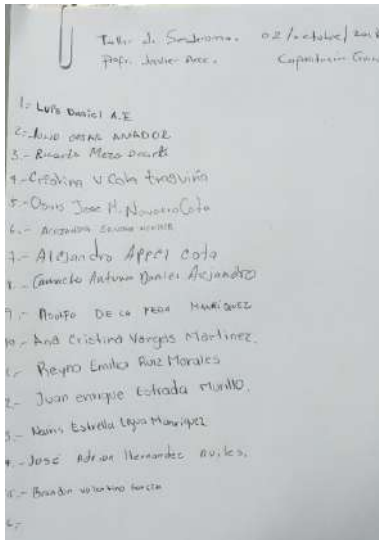 Taller de        02/octubre/201
Profr. Javier Arce.        Capacitación
1.- Luis Daniel A.E
2.- Julio Cesar Amador
3.- Ricardo Meza Duarte
4.- Cristina V Cota trasviña
5.- Osiris Jose M. Navarro Cota
6.- Alejandra
7.- Alejandro Appel cota
8.- Camacho Antuna Daniel Alejandro
9.- Adolfo De la Peña Manriquez
10.- Ana Cristina Vargas Martinez.
1,- Reyna Emilia Ruiz Morales
2.- Juan enrique Estrada Murillo.
3.- Estrella Manriquez
4.- José Adrian Hernandez Aviles.
5.- Brandon Valentino Garcia
6,-